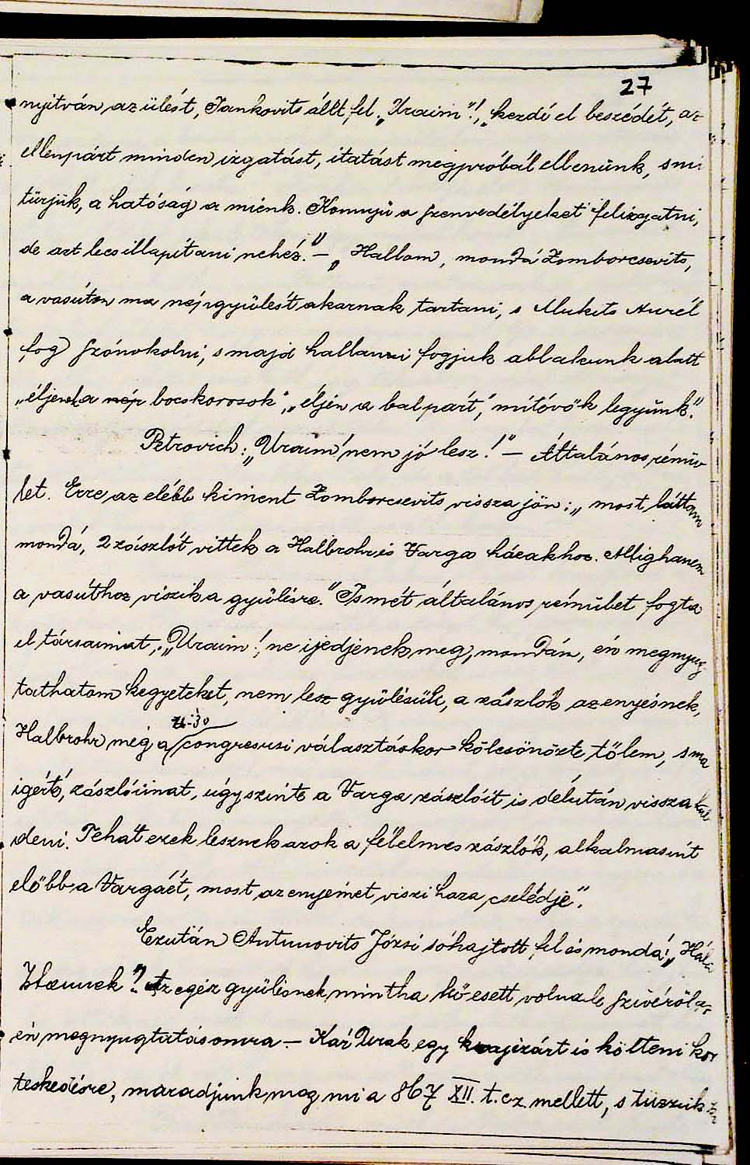 27
nyitván az ülést, Jankovits állt fel „Uraim"!, kezdé el beszédét, az
ellenpárt minden izgatást, itatást megpróbál ellenünk, s mi
türjük, a hatóság a mienk. Könnyü a szenvedélyeket felizgatni,
de azt lecsillapítani nehéz." – „Hallom, mondá Zomborcsevits,
a vasúton ma népgyülést akarnak tartani, s Mukits Aurél
fog szónokolni, s majd hallanni fogjuk ablakunk alatt
„éljenek a nép bocskorosok", „éljén a balpárt," mitévők legyünk."
Petrovich: „Uraim! nem jó lesz!" – Általános rémü-
let. Erre az elébb kiment Zomborcsevits vissza jön: „most láttam
mondá, 2 zászlót vittek a Halbrohr és Varga házakhoz. Alighanem
a vasúthoz viszik a gyülésre." Ismét általános rémület fogta
el társaimat. „Uraim!, ne ijedjenek meg, mondán, én megnyug
tathatom kegyeteket, nem lesz gyülésük, a zászlók az enyésnek,
Halbrohr még a congressusi választáskor kölcsönözte tőlem, s ma
igérte, zászlóimat, úgyszinte a Varga zászlóit is délután vissza kül
deni. Tehát ezek lesznek azok a félelmes zászlók, alkalmasint
előbb a Vargáét, most az enyémet viszi haza cselédje".
Ezután Antunovits Józsi sóhajtott fel és mondá: „Hála
Istennek"! Az egész gyülésnek mintha kő esett volna le szivéről az
én megnyugtatásomra – Kár Urak egy krajczárt is költeni kor
teskedésre, maradjunk meg mi a 867 XII. t. cz mellett, s tüzzük